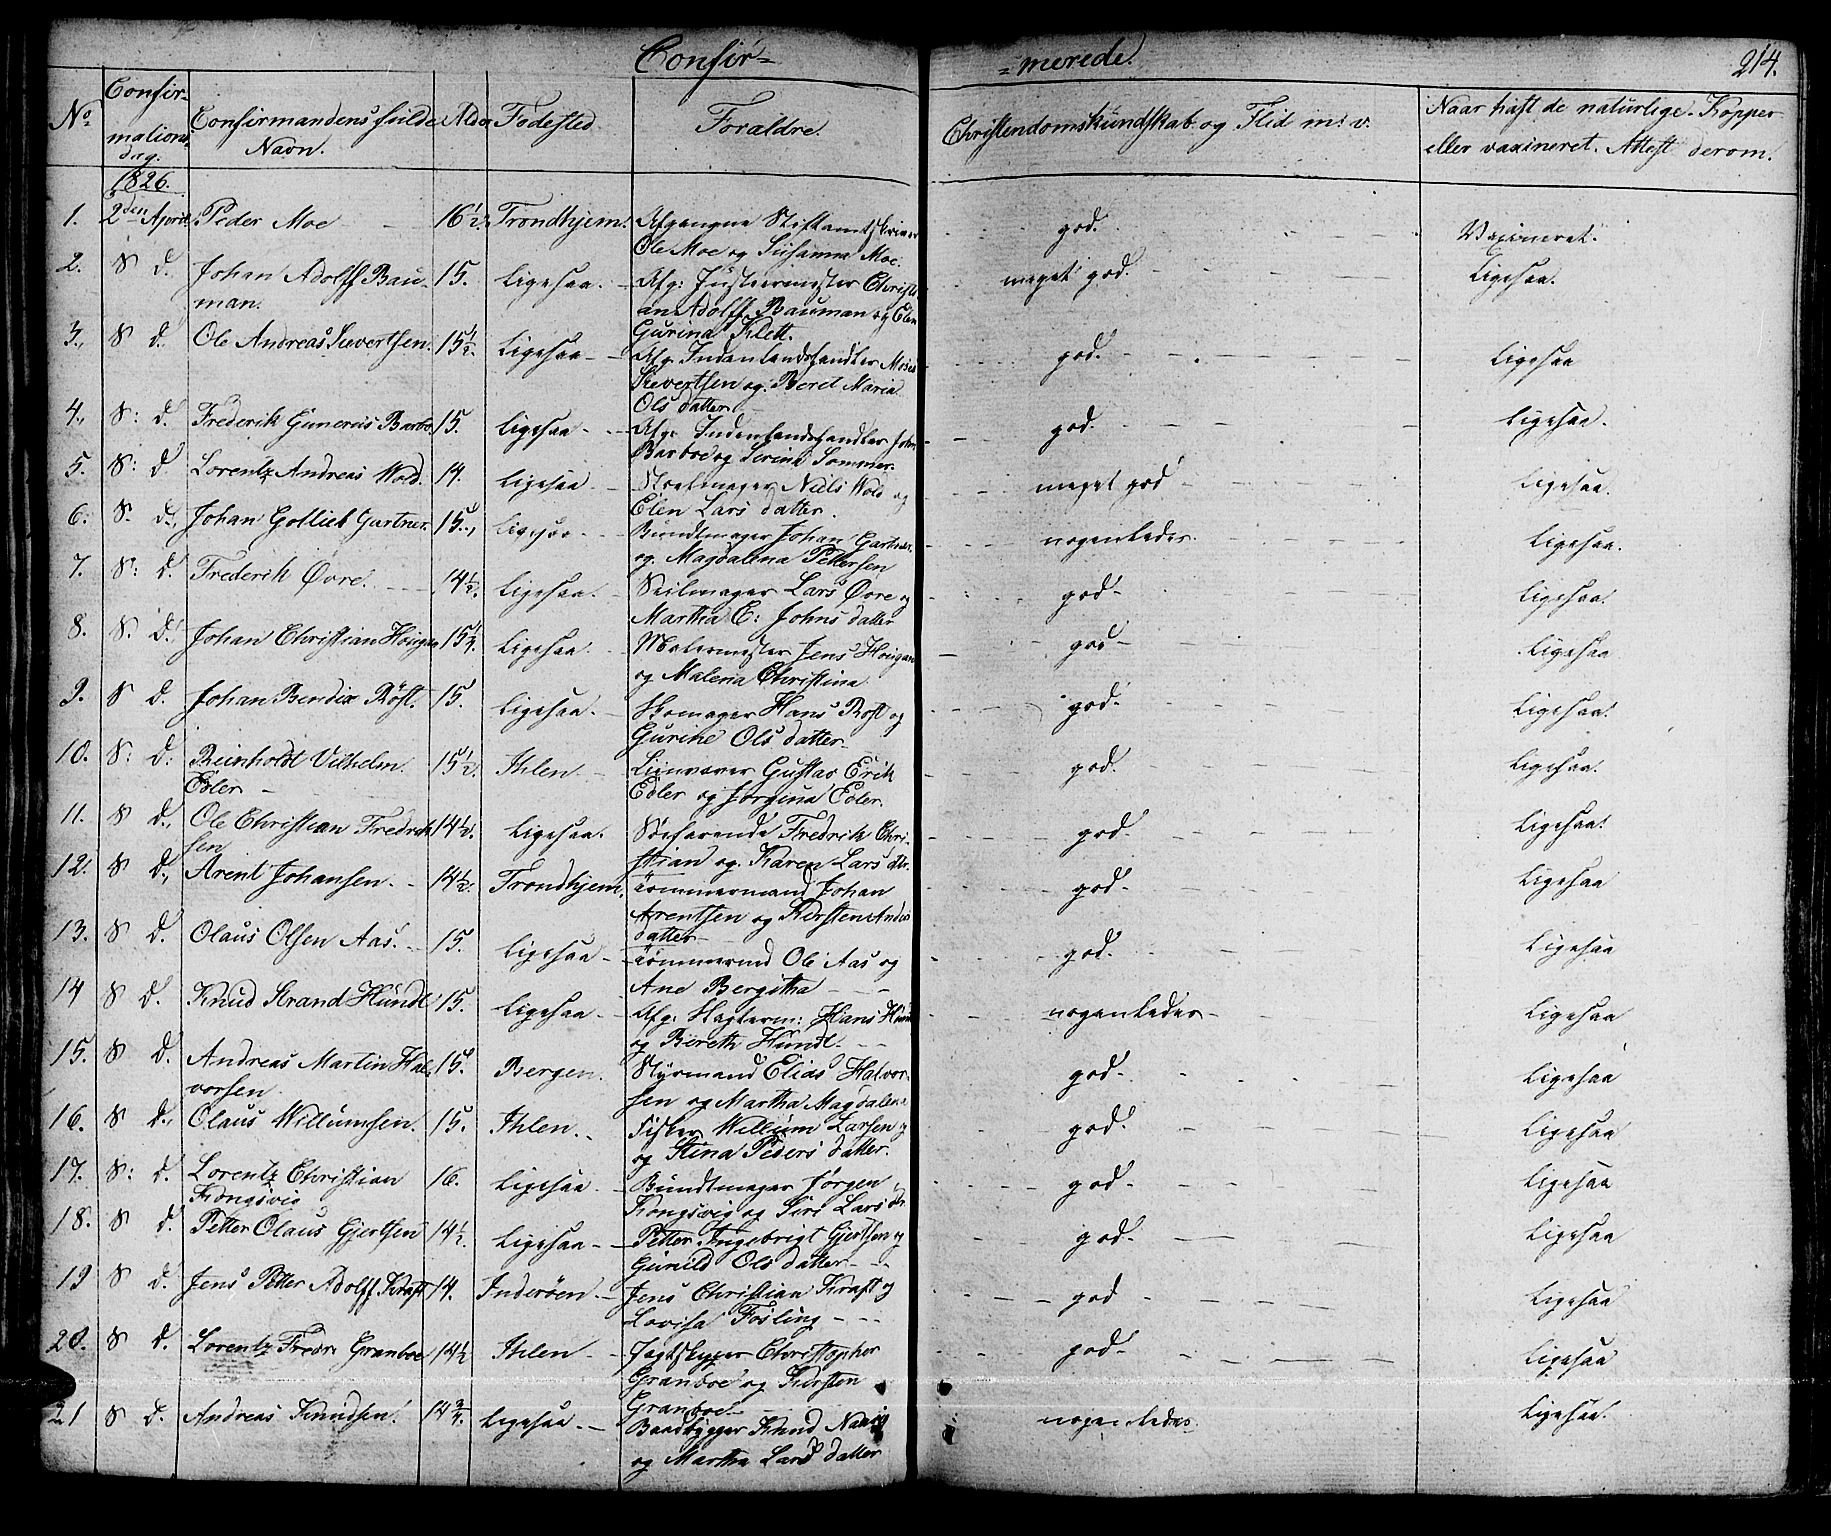 Confir= =merede. 214.
No. Confirmations dag. Confirmandens fulde Navn. Alder Fødested. Foraldre. Christendomskundskab og Flid m: v. Naar haft de naturlige Kopper eller vaxineret. Attest derom.
1826.
1. 2den April Peder Moe 16½ Trondhjem. Afgangne Stiftamtskriver god. Vaxineret.
Ole Moe og Susanna Moe.
2. S d. Johan Adolff Bau- 15. Ligesaa. Afg: Justeermester Christi meget god. Ligesaa.
man. an Adolff Bauman og Elen
Gurina Klett.
3. S d. Ole Andreas Sivertsen. 15½. Ligesaa Afg. Indenlandshandler Moses god. Ligesaa
Sivertsen og Beret Maria
Ols datter
4. S: d. Frederik Gunerius Barbo 15. Ligesaa Afg: Indenlandshandler John god. Ligesaa.
Barboe og Serina Sommer.
5. S: d Lorentz Andreas Wold. 14. Ligesaa Stoelmager Niels Wold og meget god Ligesaa.
Elen Lars datter.
6. S. d. Johan Gotlieb Gartner. 15. Ligesaa Bundtmager Johan Gartner nogenledes. Ligesaa.
og Magdalena Pettersen
7. S: d. Frederik Øvre. 14½. Ligesaa. Seilmager Lars Øvre og god. Ligesaa.
Martha E: Johns datter
8. S. d. Johan Christian Hougan 15¼. Ligesaa. Malermester Jens Hougan god Ligesaa
og Malena Christina
9. S d. Johan Bendix Røst. 15. Ligesaa. Skomager Hans Rost og god. Ligesaa.
Gurine Ols datter
10. S: d: Reinholdt Vilhelm 15½. Ihlen. Linvæver Gustav Erik god. Ligesaa.
Edler Edler og Jørgina Edler.
11. S d. Ole Christian Fredrik 14½. Ligesaa. Søefarende Fredrik Chri- god. Ligesaa.
sen stian og Karen Lars dtr.
12. S d. Arent Johansen. 14½. Trondhjem. Tømmermand Johan god. Ligesaa
Arentsen og Kirsten Anders
datter
13. S d. Olaus Olsen Aas. 15. Ligesaa Tømmermd Ole Aas og god. Ligesaa
Ane Bergitha
14 S d. Knud Strand Hundt 15. Ligesaa Afg: Hans nogenledes Ligesaa
og Bereth Hundt.
15. S d. Andreas Martin Hal- 15. Bergen. Styrmand Elias Halvor- god. Ligesaa
vorsen. sen og Martha Magdalena
16. S d. Olaus Willumsen. 15. Ihlen. Fisker Willum Larsen god. Ligesaa
og Stina Peders datter.
17. S: d. Lorentz Christian 16. Ligesaa Bundtmager Jørgen god. Ligesaa
Kongsvig Kongsvig og Siri Lars dr.
18. S d. Petter Olaus Gjertsen 14½. Ligesaa Petter Ingebrigt Gjertsen og god. Ligesaa
Gunild Ols datter
19 S d. Jens Petter Adolff Kraft 14. Inderøen. Jens Christian Kraft og god Ligesaa
Lovisa Fosling
20. S d. Lorentz Fredr: Granboe 14½ Ihlen Jagtskipper Christopher god. Ligesaa
Granboe og Kirsten
Granboe
21 S d. Andreas Knudsen. 14¾. Ligesaa. Baadbygger Knud nogenledes. Ligesaa.
og Martha Lars datter